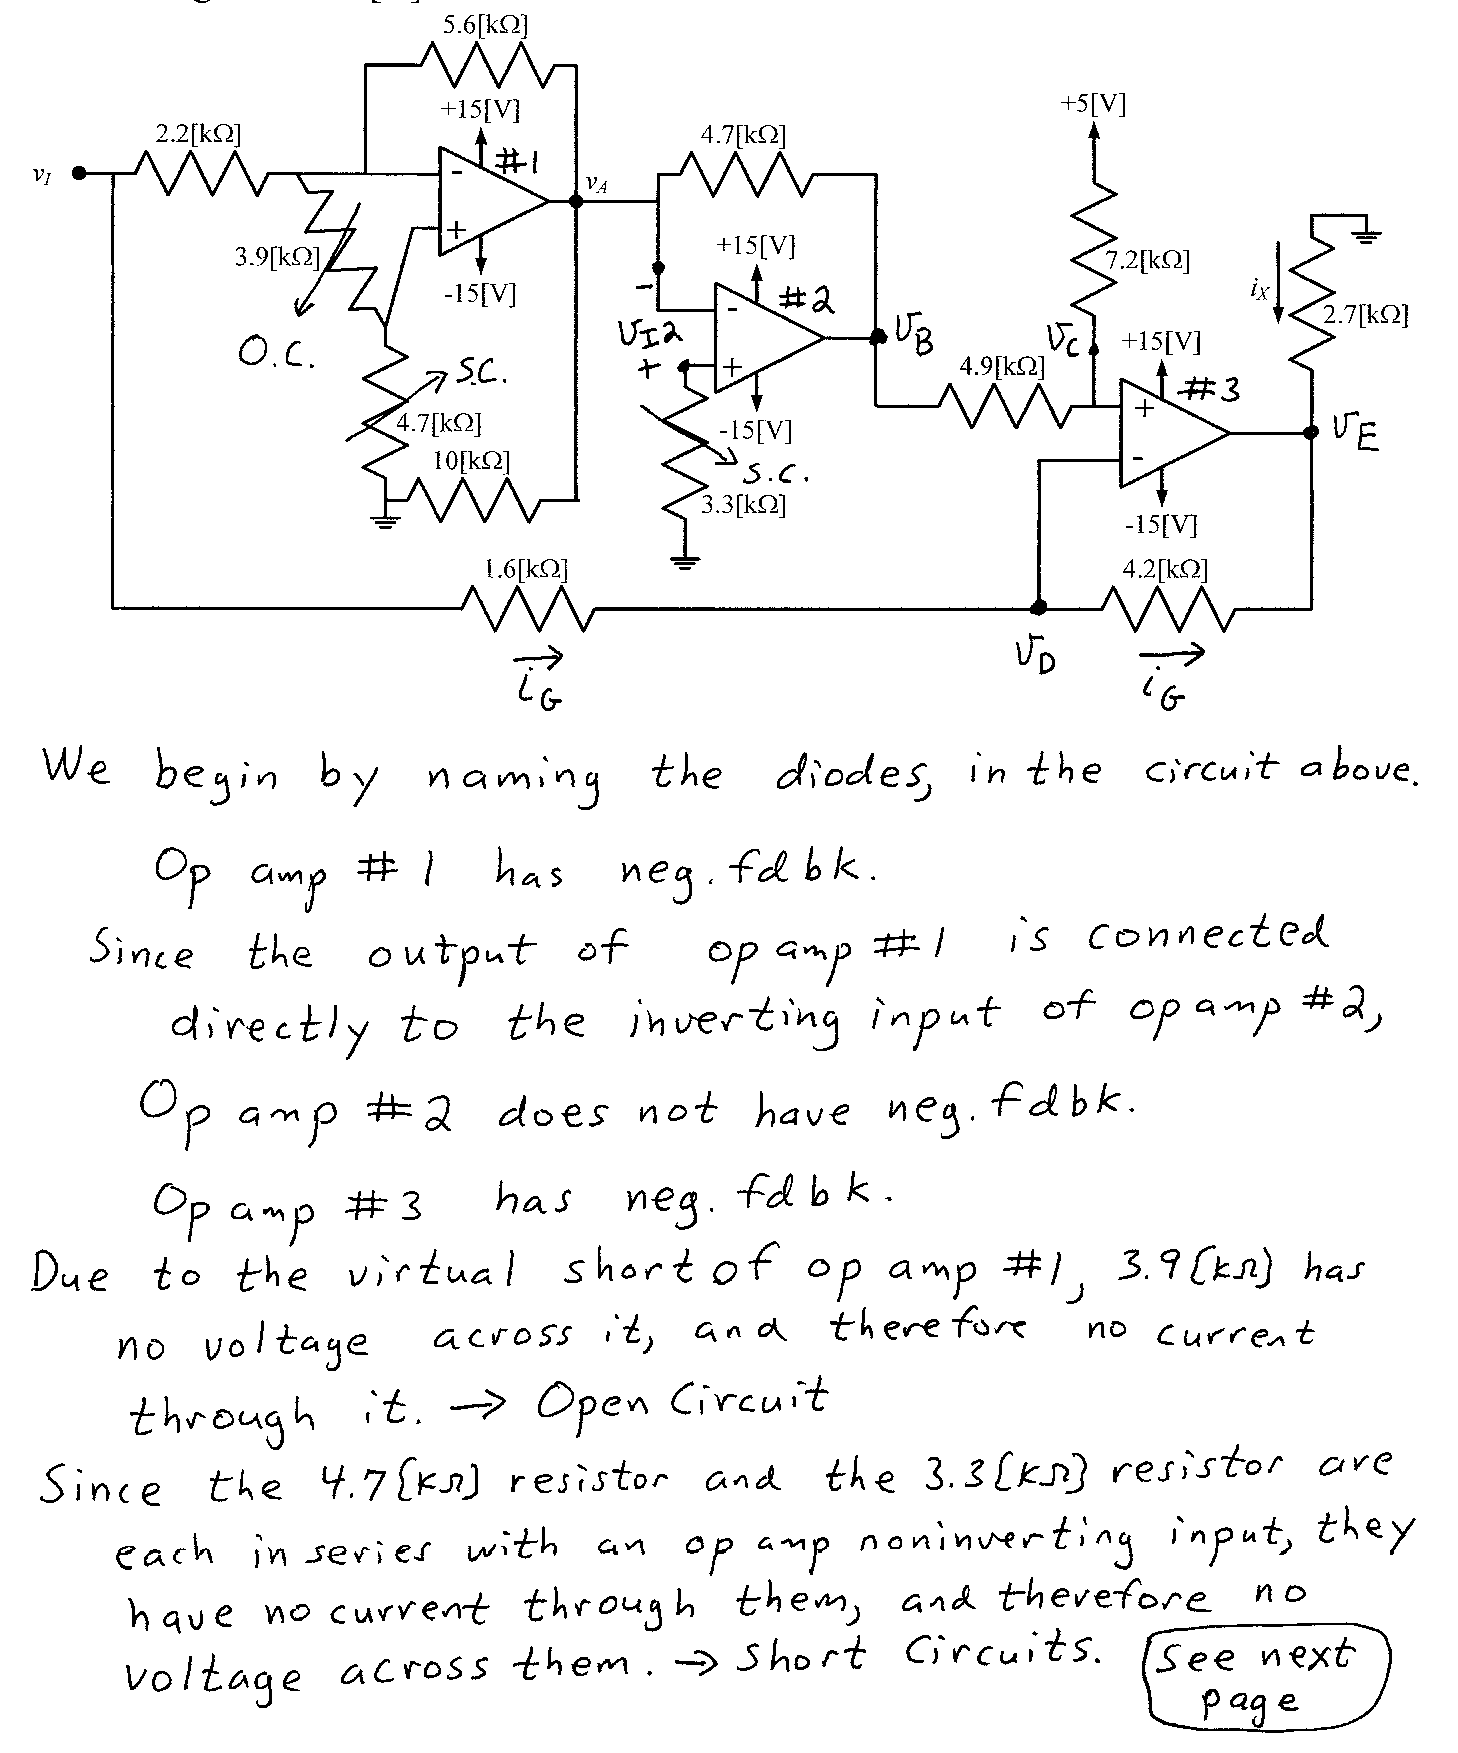 5.6[kΩ]
+15[V]
#1
2.2[kΩ]
v_I
-
+
v_A
3.9[kΩ]
-15[V]
O.C.
S.C.
4.7[kΩ]
10[kΩ]
4.7[kΩ]
+15[V]
#2
-
v_I2
+
-
+
v_B
-15[V]
S.C.
3.3[kΩ]
+5[V]
7.2[kΩ]
v_C
4.9[kΩ]
+15[V]
#3
+
-
-15[V]
i_X
2.7[kΩ]
v_E
1.6[kΩ]
i_G
v_D
4.2[kΩ]
i_G
We begin by naming the diodes, in the circuit above.
Op amp #1 has neg. fdbk.
Since the output of op amp #1 is connected
directly to the inverting input of op amp #2,
Op amp #2 does not have neg. fdbk.
Op amp #3 has neg. fdbk.
Due to the virtual short of op amp #1, 3.9[kΩ] has
no voltage across it, and therefore no current
through it. → Open Circuit
Since the 4.7[kΩ] resistor and the 3.3[kΩ] resistor are
each in series with an op amp noninverting input, they
have no current through them, and therefore no
voltage across them. → Short Circuits.
See next
page